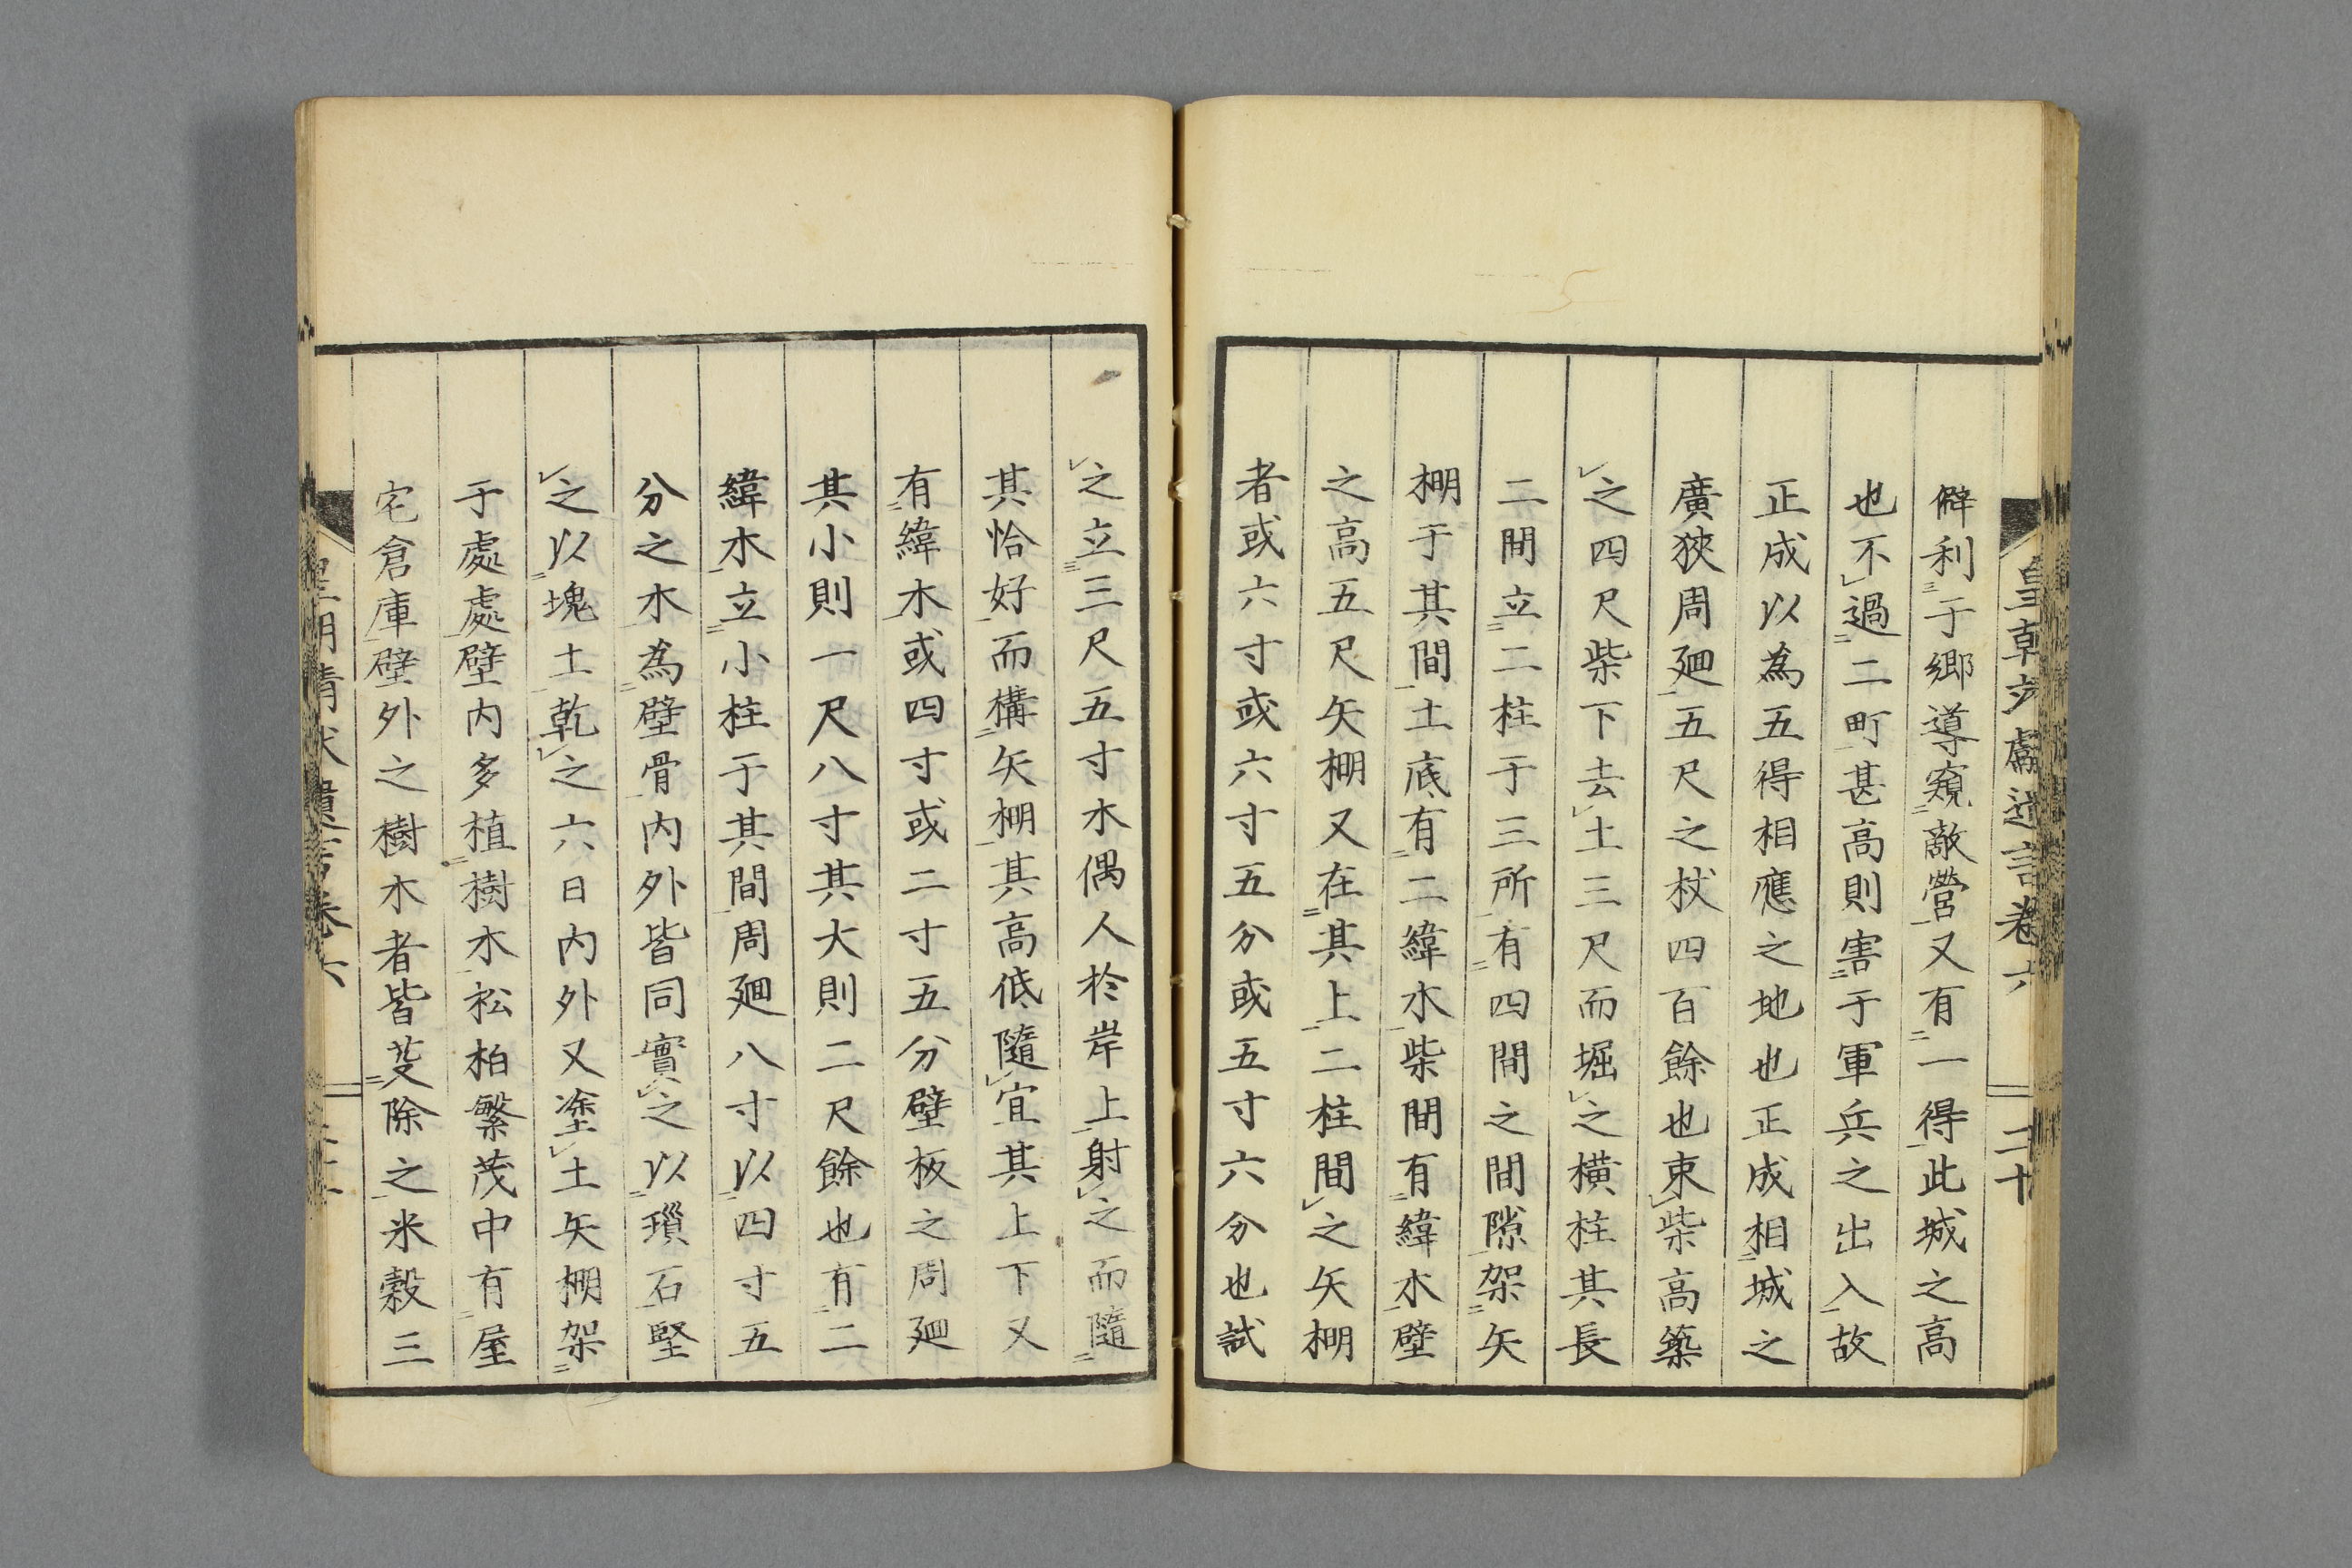 僻利于郷導窺敵營又有一得此城之高
也不過二町甚高則害于軍兵之出入故
正成以為五得相應之地也正成相城之
廣狹周廻五尺之杖四百餘也束柴高築
之四尺柴下去土三尺而堀之横柱其長
二間立二柱于三所有四間之間隙架矢
棚于其間土底有二緯木柴間有緯木壁
之高五尺矢棚又在其上二柱間之矢棚
者或六寸或六寸五分或五寸六分也試
之立三尺五寸木偶人於岸上射之而隨
其恰好而構矢棚其高低隨宜其上下又
有緯木或四寸或二寸五分壁板之周廻
其小則一尺八寸其大則二尺餘也有二
緯木立小柱于其間周廻八寸以四寸五
分之木為壁骨内外皆同實之以瑣石堅
之以塊土乾之六日内外又塗土矢棚架
于處處壁内多植樹木松柏繁茂中有屋
宅倉庫壁外之樹木者皆芟除之米穀三